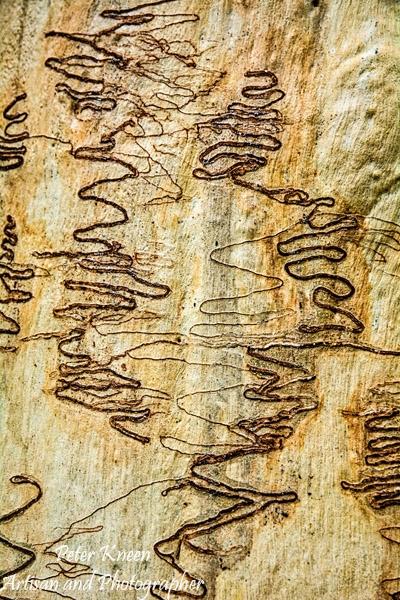 Peter Kneen
Artisan and Photographer